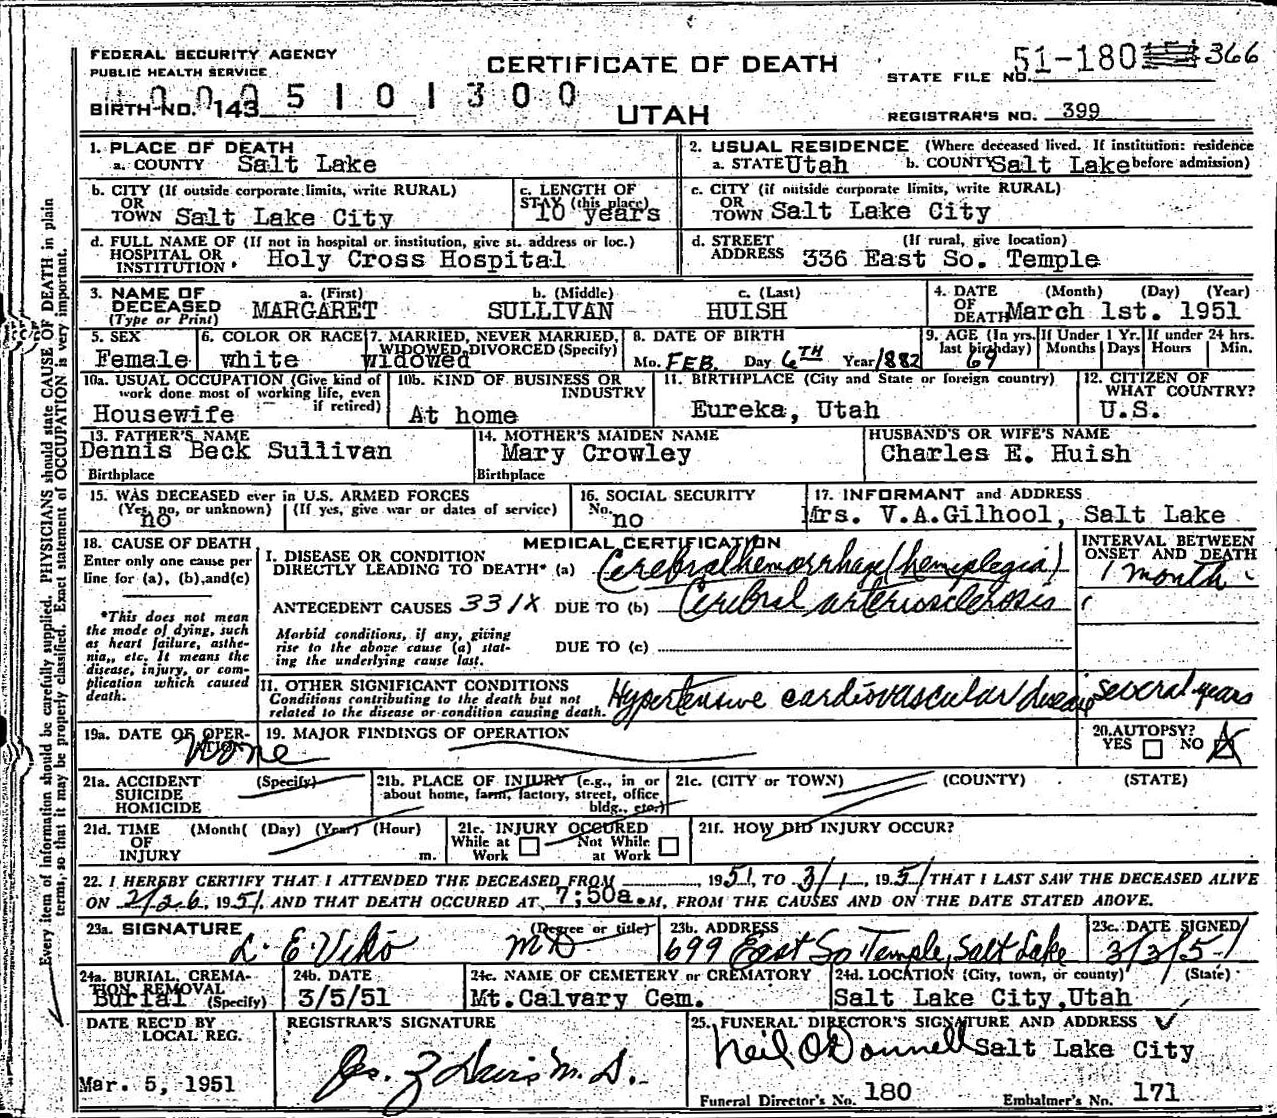 FEDERAL SECURITY AGENCY
PUBLIC HEALTH SERVICE
CERTIFICATE OF DEATH
UTAH
STATE FILE NO. 51-180 366
BIRTH NO. 143
0005101300
REGISTRAR'S NO. 399
1. PLACE OF DEATH
a. COUNTY Salt Lake
2. USUAL RESIDENCE (Where deceased lived. If institution: residence before admission)
a. STATE Utah b. COUNTY Salt Lake
b. CITY (If outside corporate limits, write RURAL)
OR
TOWN Salt Lake City
c. LENGTH OF
STAY (this place)
10 years
c. CITY (if outside corporate limits, write RURAL)
OR
TOWN Salt Lake City
d. FULL NAME OF (If not in hospital or institution, give st. address or loc.)
HOSPITAL OR
INSTITUTION Holy Cross Hospital
d. STREET (If rural, give location)
ADDRESS 336 East So. Temple
3. NAME OF
DECEASED
(Type or Print)
a. (First) b. (Middle) c. (Last)
MARGARET SULLIVAN HUISH
4. DATE (Month) (Day) (Year)
OF
DEATH March 1st. 1951
5. SEX
Female
6. COLOR OR RACE
white
7. MARRIED, NEVER MARRIED,
WIDOWED, DIVORCED (Specify)
widowed
8. DATE OF BIRTH
Mo. FEB. Day 6TH Year 1882
9. AGE (In yrs. last birthday)
69
If Under 1 Yr.
Months Days
If under 24 hrs.
Hours Min.
10a. USUAL OCCUPATION (Give kind of
work done most of working life, even
if retired)
Housewife
10b. KIND OF BUSINESS OR
INDUSTRY
At home
11. BIRTHPLACE (City and State or foreign country)
Eureka, Utah
12. CITIZEN OF
WHAT COUNTRY?
U.S.
13. FATHER'S NAME
Dennis Beck Sullivan
Birthplace
14. MOTHER'S MAIDEN NAME
Mary Crowley
Birthplace
HUSBAND'S OR WIFE'S NAME
Charles E. Huish
15. WAS DECEASED ever in U.S. ARMED FORCES
(Yes, no, or unknown) (If yes, give war or dates of service)
no
16. SOCIAL SECURITY
No.
no
17. INFORMANT and ADDRESS
Mrs. V.A.Gilhool, Salt Lake
18. CAUSE OF DEATH
Enter only one cause per
line for (a), (b), and (c)
*This does not mean
the mode of dying, such
as heart failure, asthe-
nia,, etc. It means the
disease, injury, or com-
plication which caused
death.
MEDICAL CERTIFICATION
INTERVAL BETWEEN
ONSET AND DEATH
I. DISEASE OR CONDITION
DIRECTLY LEADING TO DEATH* (a) Cerebral hemorrhage (hemiplegia) 1 month
ANTECEDENT CAUSES 331X DUE TO (b) Cerebral arteriosclerosis
Morbid conditions, if any, giving
rise to the above cause (a) stat-
ing the underlying cause last.
DUE TO (c)
II. OTHER SIGNIFICANT CONDITIONS
Conditions contributing to the death but not
related to the disease or condition causing death.
Hypertensive cardiovascular disease several years
19a. DATE OF OPER-
ATION
None
19. MAJOR FINDINGS OF OPERATION
20. AUTOPSY?
YES NO X
21a. ACCIDENT (Specify)
SUICIDE
HOMICIDE
21b. PLACE OF INJURY (e.g., in or
about home, farm, factory, street, office
bldg., etc.)
21c. (CITY or TOWN) (COUNTY) (STATE)
21d. TIME (Month( (Day) (Year) (Hour)
OF
INJURY m.
21c. INJURY OCCURED
While at Work Not While at Work
21f. HOW DID INJURY OCCUR?
22. I HEREBY CERTIFY THAT I ATTENDED THE DECEASED FROM 1951, TO 3/1, 1951 THAT I LAST SAW THE DECEASED ALIVE
ON 2/26, 1951, AND THAT DEATH OCCURED AT 7:50a.M, FROM THE CAUSES AND ON THE DATE STATED ABOVE.
23a. SIGNATURE (Degree or title)
L. E. Viko MD
23b. ADDRESS
699 East So Temple, Salt Lake
23c. DATE SIGNED
3/3/51
24a. BURIAL, CREMA-
TION REMOVAL
(Specify)
Burial
24b. DATE
3/5/51
24c. NAME OF CEMETERY OR CREMATORY
Mt.Calvary Cem.
24d. LOCATION (City, town, or county) (State)
Salt Lake City,Utah
DATE REC'D BY
LOCAL REG.
Mar. 5, 1951
REGISTRAR'S SIGNATURE
M. D.
25. FUNERAL DIRECTOR'S SIGNATURE AND ADDRESS
Neil O'Donnell Salt Lake City
Funeral Director's No. 180 Embalmer's No. 171
Every item of information should be carefully supplied. PHYSICIANS should state CAUSE OF DEATH in plain
terms, so that it may be properly classified. Exact statement of OCCUPATION is very important.